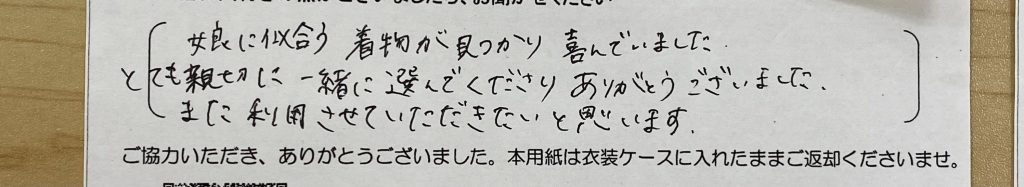 お聞かせください
娘に似合う 着物が見つかり 喜んでいました.
とても親切に 一緒に選んでくださり ありがとうございました.
また利用させていただきたいと思います.
ご協力いただき、ありがとうございました。本用紙は衣装ケースに入れたままご返却くださいませ。